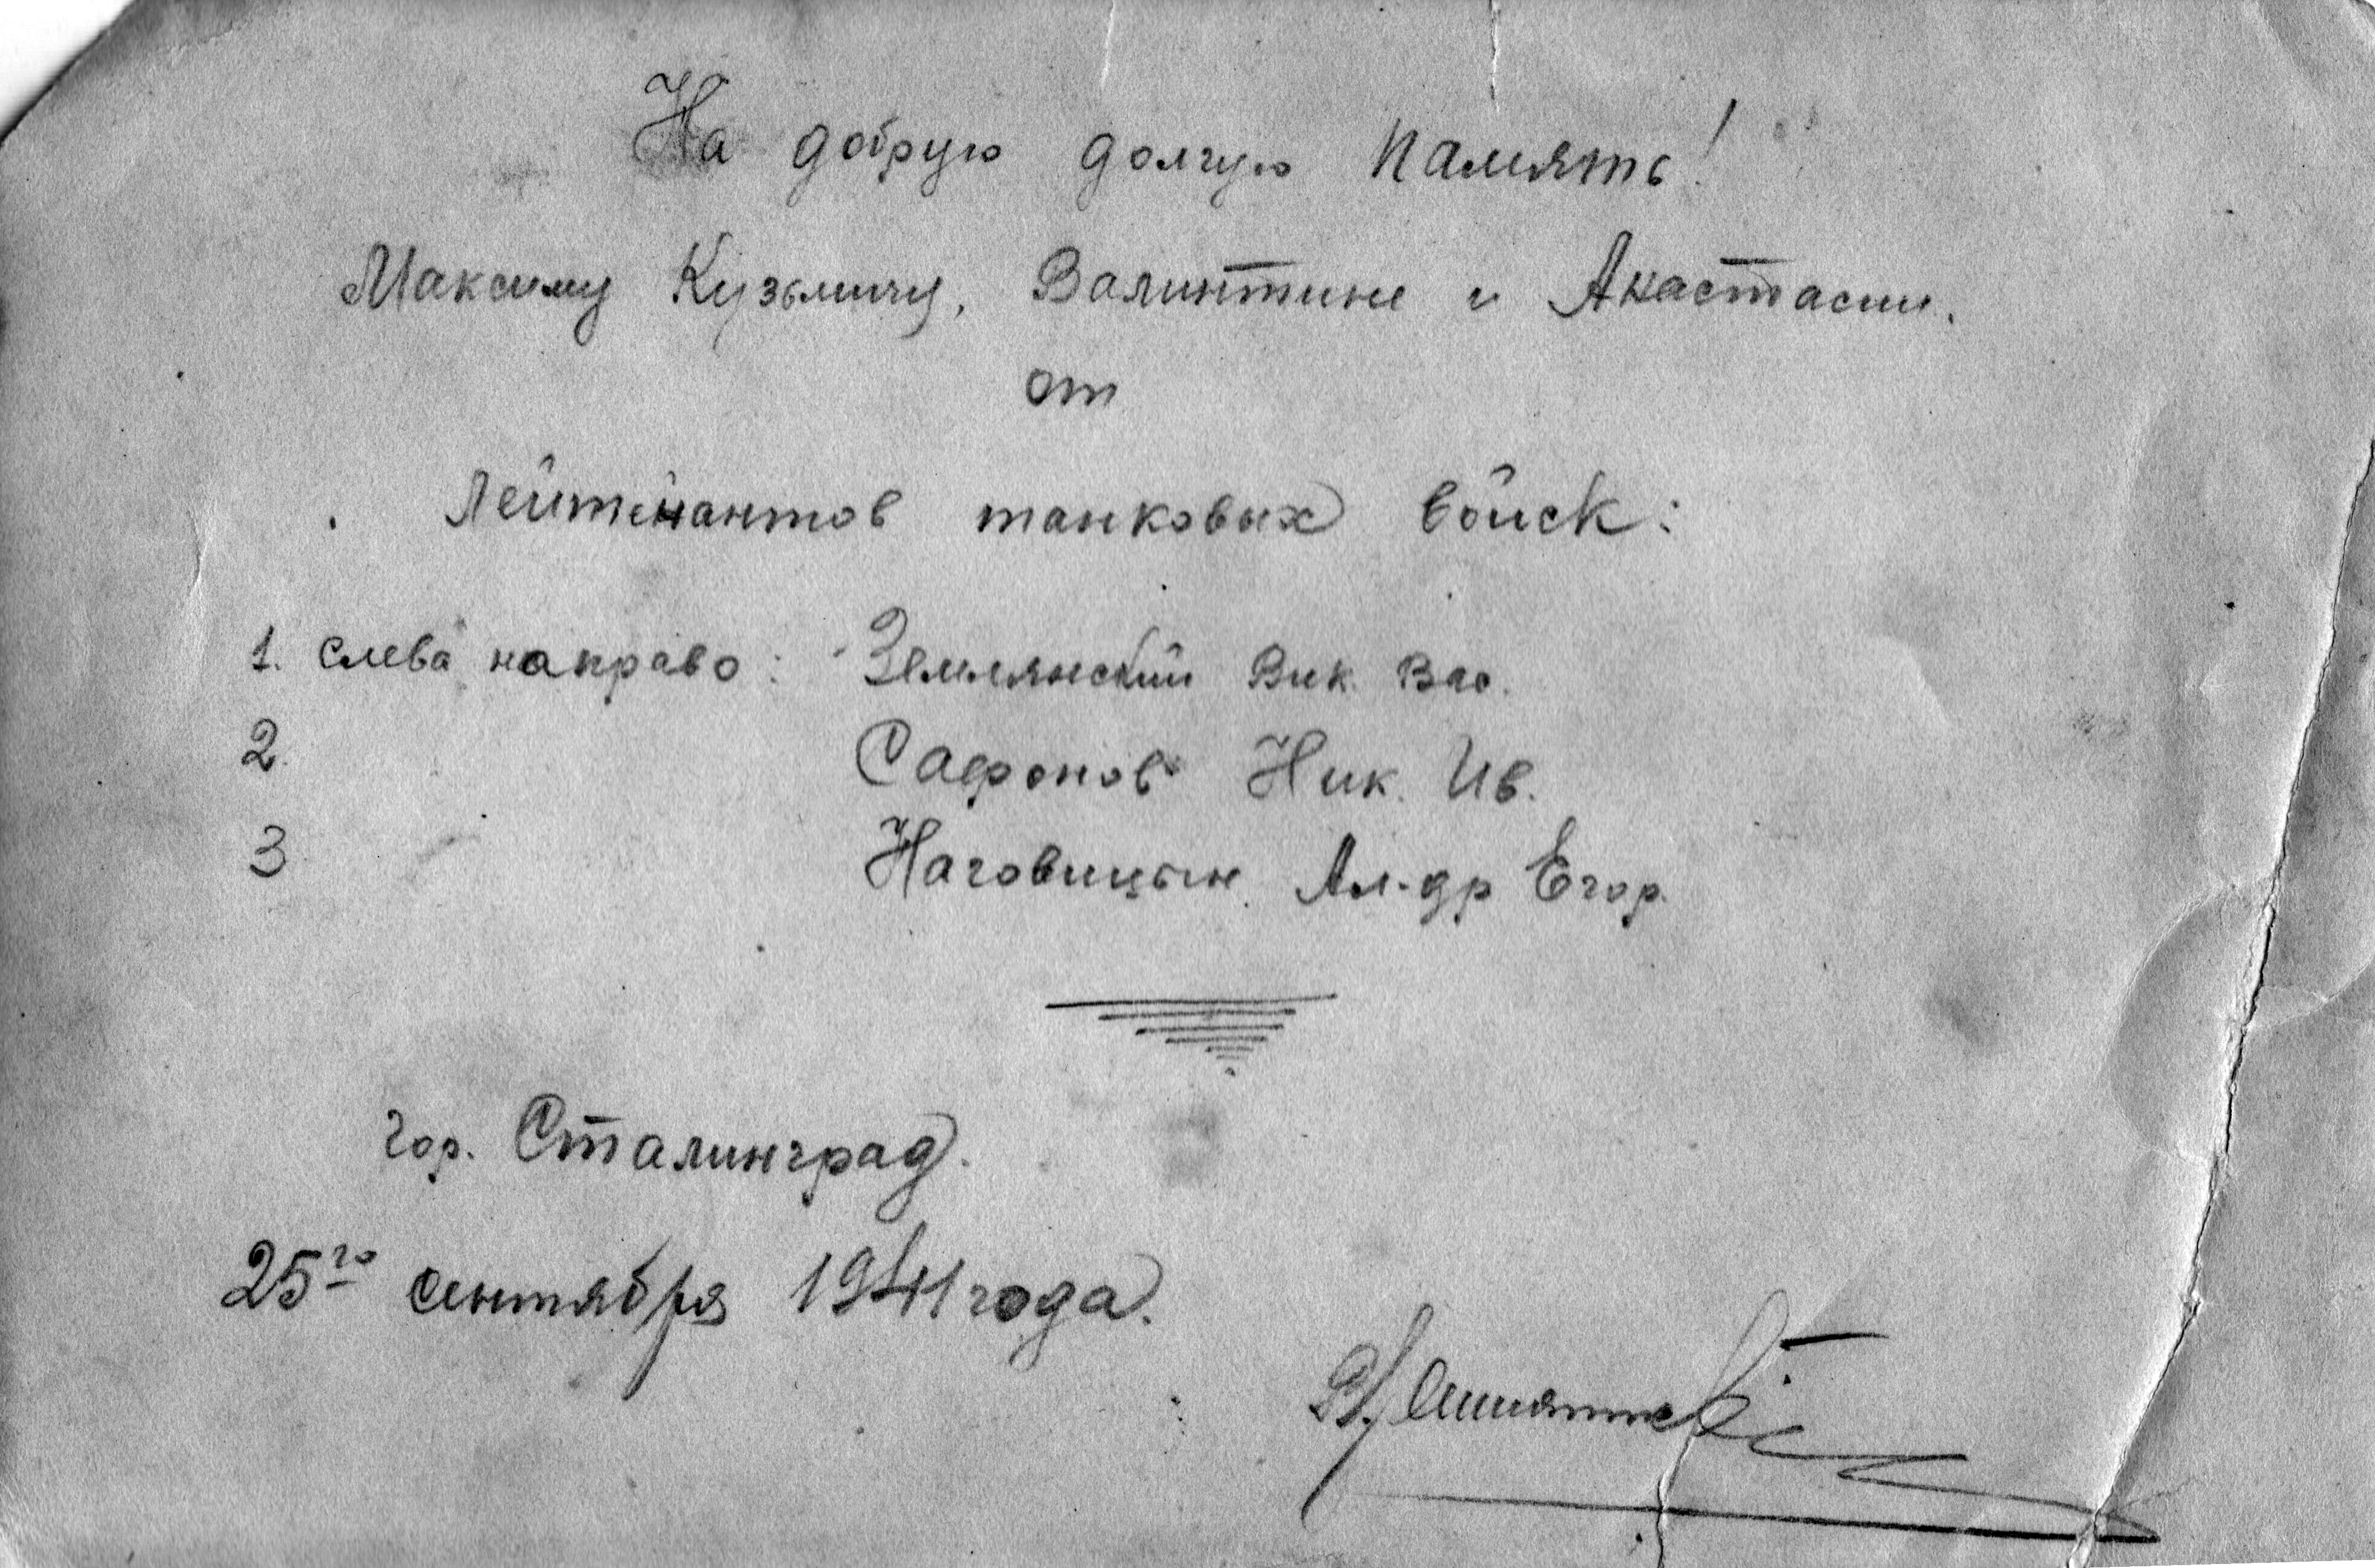 На добрую долгую память!
Максиму Кузьмичу, Валинтине и Анастасии.
от
Лейтенантов танковых войск:
1. слева направо: Землянский Вик. Вас.
2. Сафонов Ник. Ив.
3 Наговицын. Ал-др Егор.
гор. Сталинград.
25го сентября 1941 года.